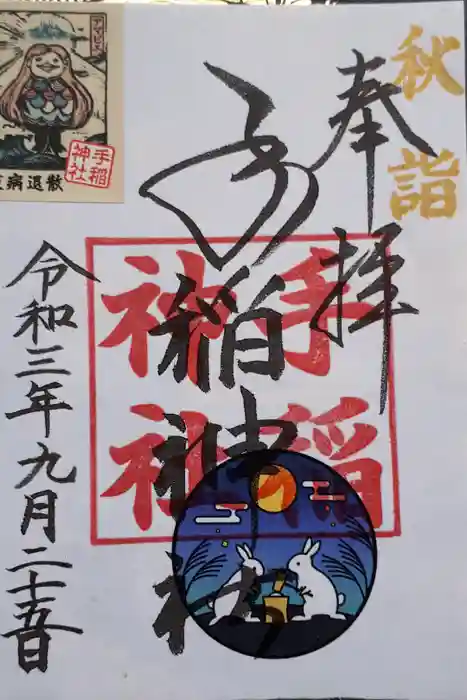 秋詣
奉拝
手稲神社
手稲神社
令和三年九月二十五日
アマビエ
病退散
手稲神社